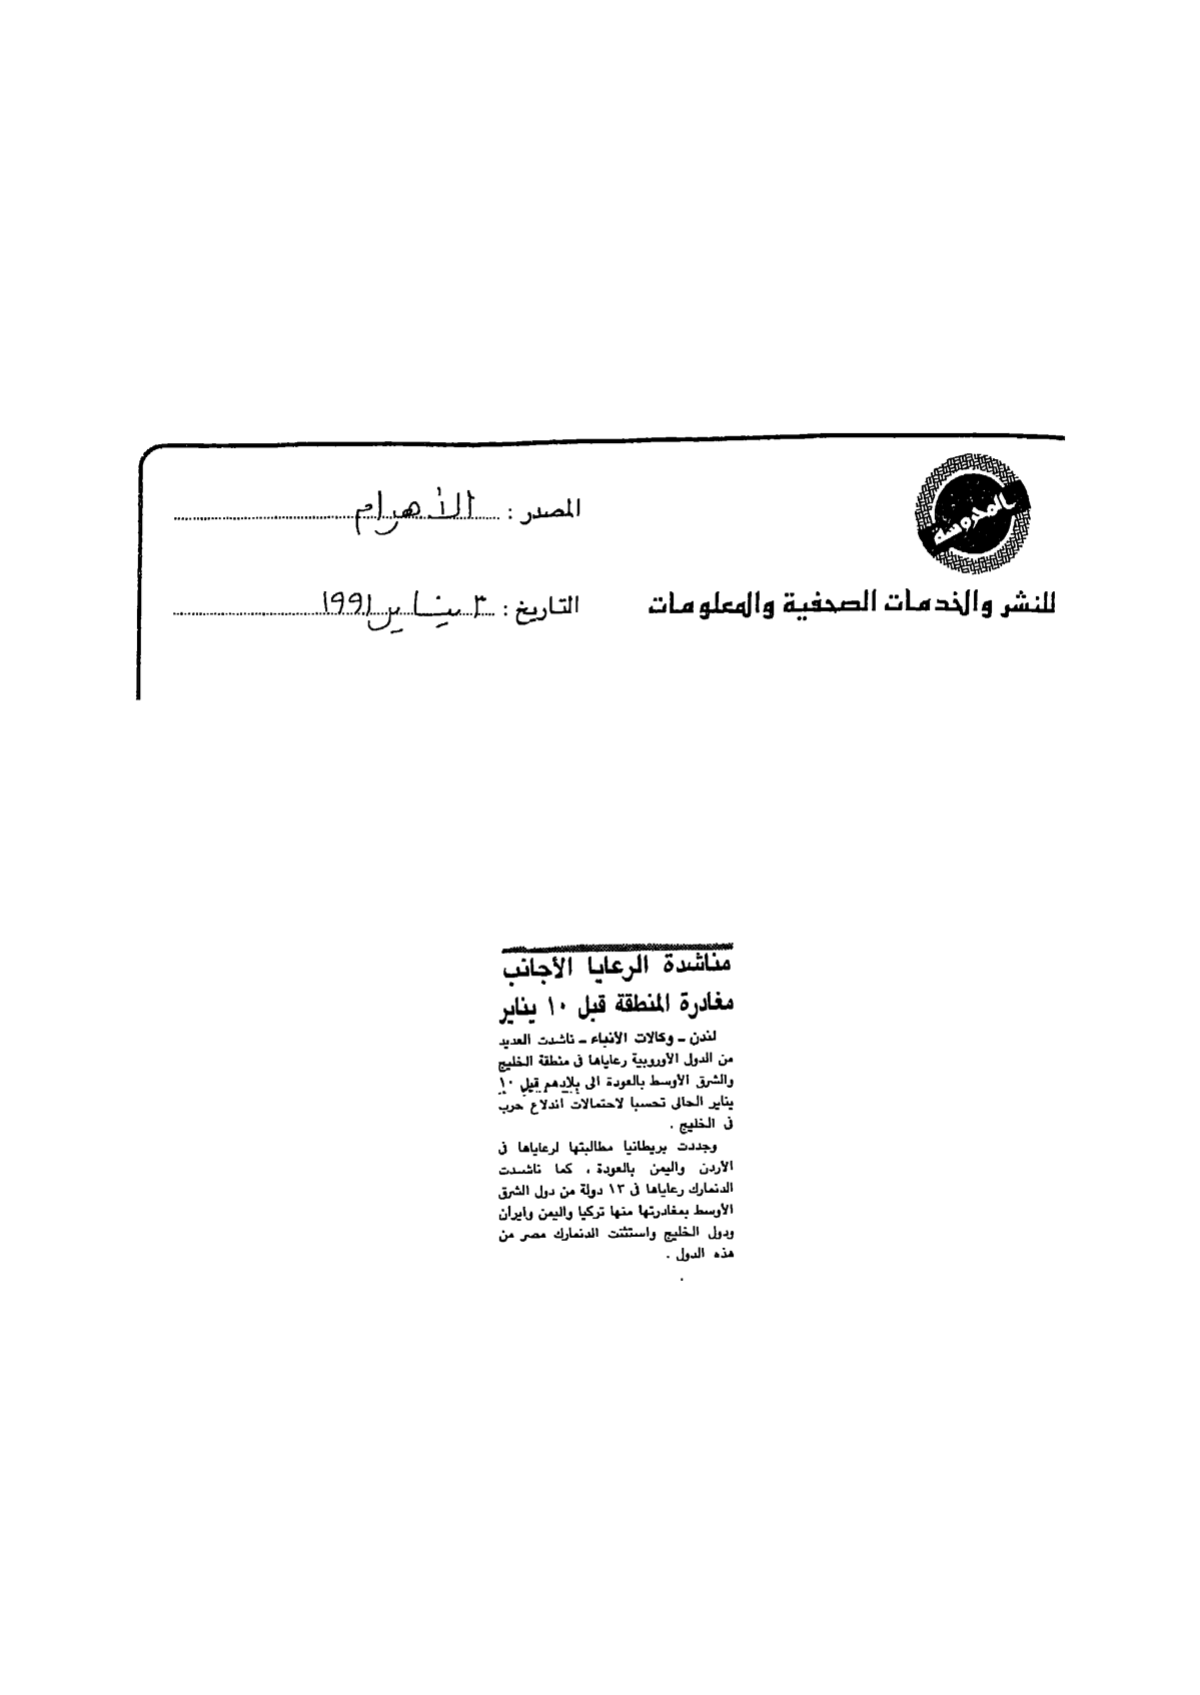 المحروسة
للنشر والخدمات الصحفية والمعلومات
المصدر : الأهرام
التاريخ : ٣ يناير ١٩٩١
مناشدة الرعايا الأجانب
مغادرة المنطقة قبل ١٠ يناير
لندن ـ وكالات الأنباء ـ ناشدت العديد
من الدول الأوروبية رعاياها فى منطقة الخليج
والشرق الأوسط بالعودة الى بلادهم قبل ١٠
يناير الحالى تحسبا لاحتمالات اندلاع حرب
فى الخليج .
وجددت بريطانيا مطالبتها لرعاياها فى
الأردن واليمن بالعودة ، كما ناشدت
الدنمارك رعاياها فى ١٣ دولة من دول الشرق
الأوسط بمغادرتها منها تركيا واليمن وايران
ودول الخليج واستثنت الدنمارك مصر من
هذه الدول .